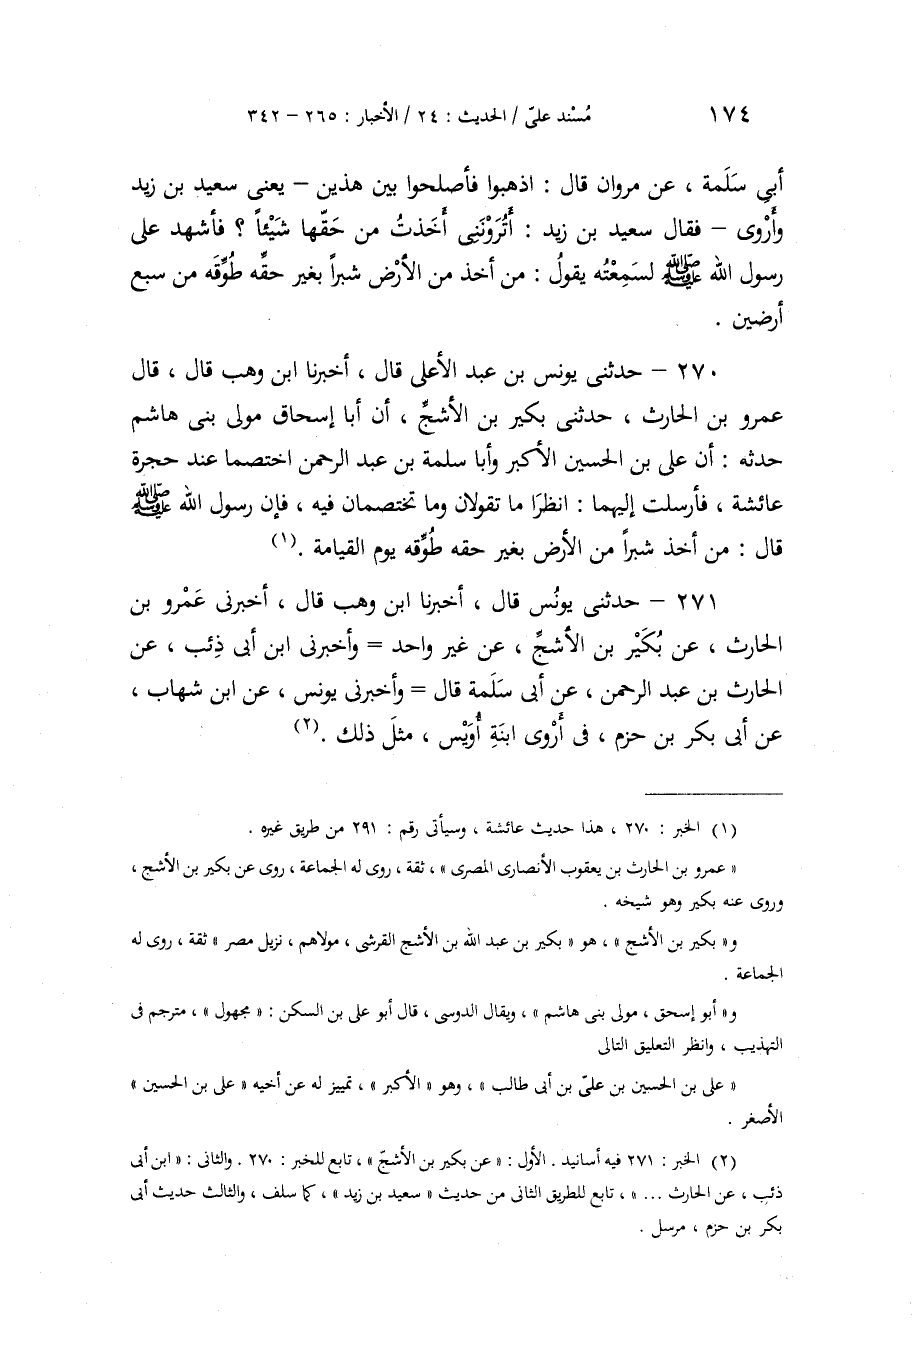 ١٧٤ مُسْند علىّ / الحديث : ٢٤ / الأخبار : ٢٦٥ – ٣٤٢
أبى سَلَمة ، عن مروان قال : اذهبوا فأصلحوا بين هذين – يعنى سعيد بن زيد
وأَرْوى – فقال سعيد بن زيد : أَتُرَوْنَنِى أَخَذتُ من حَقّها شَيْئاً ؟ فأشهد على
رسول الله ﷺ لسَمِعْتُه يقولُ : من أخذ من الأرْض شبراً بغير حقِّه طُوِّقَه من سبع
أرضين .
٢٧٠ – حدثنى يونس بن عبد الأعلى قال ، أخبرنا ابن وهب قال ، قال
عمرو بن الحارث ، حدثنى بكير بن الأشجِّ ، أن أبا إسحاق مولى بنى هاشم
حدثه : أن على بن الحسين الأكبر وأبا سلمة بن عبد الرحمن اختصما عند حجرة
عائشة ، فأرسلت إليهما : انظرَا ما تقولان وما تختصمان فيه ، فإن رسول الله ﷺ
قال : من أخذ شبراً من الأرض بغير حقه طُوِّقه يوم القيامة .(١)
٢٧١ – حدثنى يونُس قال ، أخبرنا ابن وهب قال ، أخبرنى عَمْرو بن
الحارث ، عن بُكَيْر بن الأشجِّ ، عن غير واحد = وأخبرنى ابن أبى ذِئب ، عن
الحارث بن عبد الرحمن ، عن أبى سَلَمة قال = وأخبرنى يونس ، عن ابن شهاب ،
عن أبى بكر بن حزم ، فى أَرْوى ابنَةِ أُوَيْس ، مثلَ ذلك .(٢)
(١) الخبر : ٢٧٠ ، هذا حديث عائشة ، وسيأتى رقم : ٢٩١ من طريق غيره .
« عمرو بن الحارث بن يعقوب الأنصارى المصرى » ، ثقة ، روى له الجماعة ، روى عن بكير بن الأشج ،
وروى عنه بكير وهو شيخه .
و« بكير بن الأشج » ، هو « بكير بن عبد الله بن الأشج القرشى ، مولاهم ، نزيل مصر » ثقة ، روى له
الجماعة .
و« أبو إسحق ، مولى بنى هاشم » ، ويقال الدوسى ، قال أبو على بن السكن : « مجهول » ، مترجم فى
التهذيب ، وانظر التعليق التالى
« على بن الحسين بن علىّ بن أبى طالب » ، وهو « الأكبر » ، تمييز له عن أخيه « على بن الحسين »
الأصغر .
(٢) الخبر : ٢٧١ فيه أسانيد . الأول : « عن بكير بن الأشجّ » ، تابع للخبر : ٢٧٠ . والثانى : « ابن أبى
ذئب ، عن الحارث ... » ، تابع للطريق الثانى من حديث « سعيد بن زيد » ، كما سلف ، والثالث حديث أبى
بكر بن حزم ، مرسل .